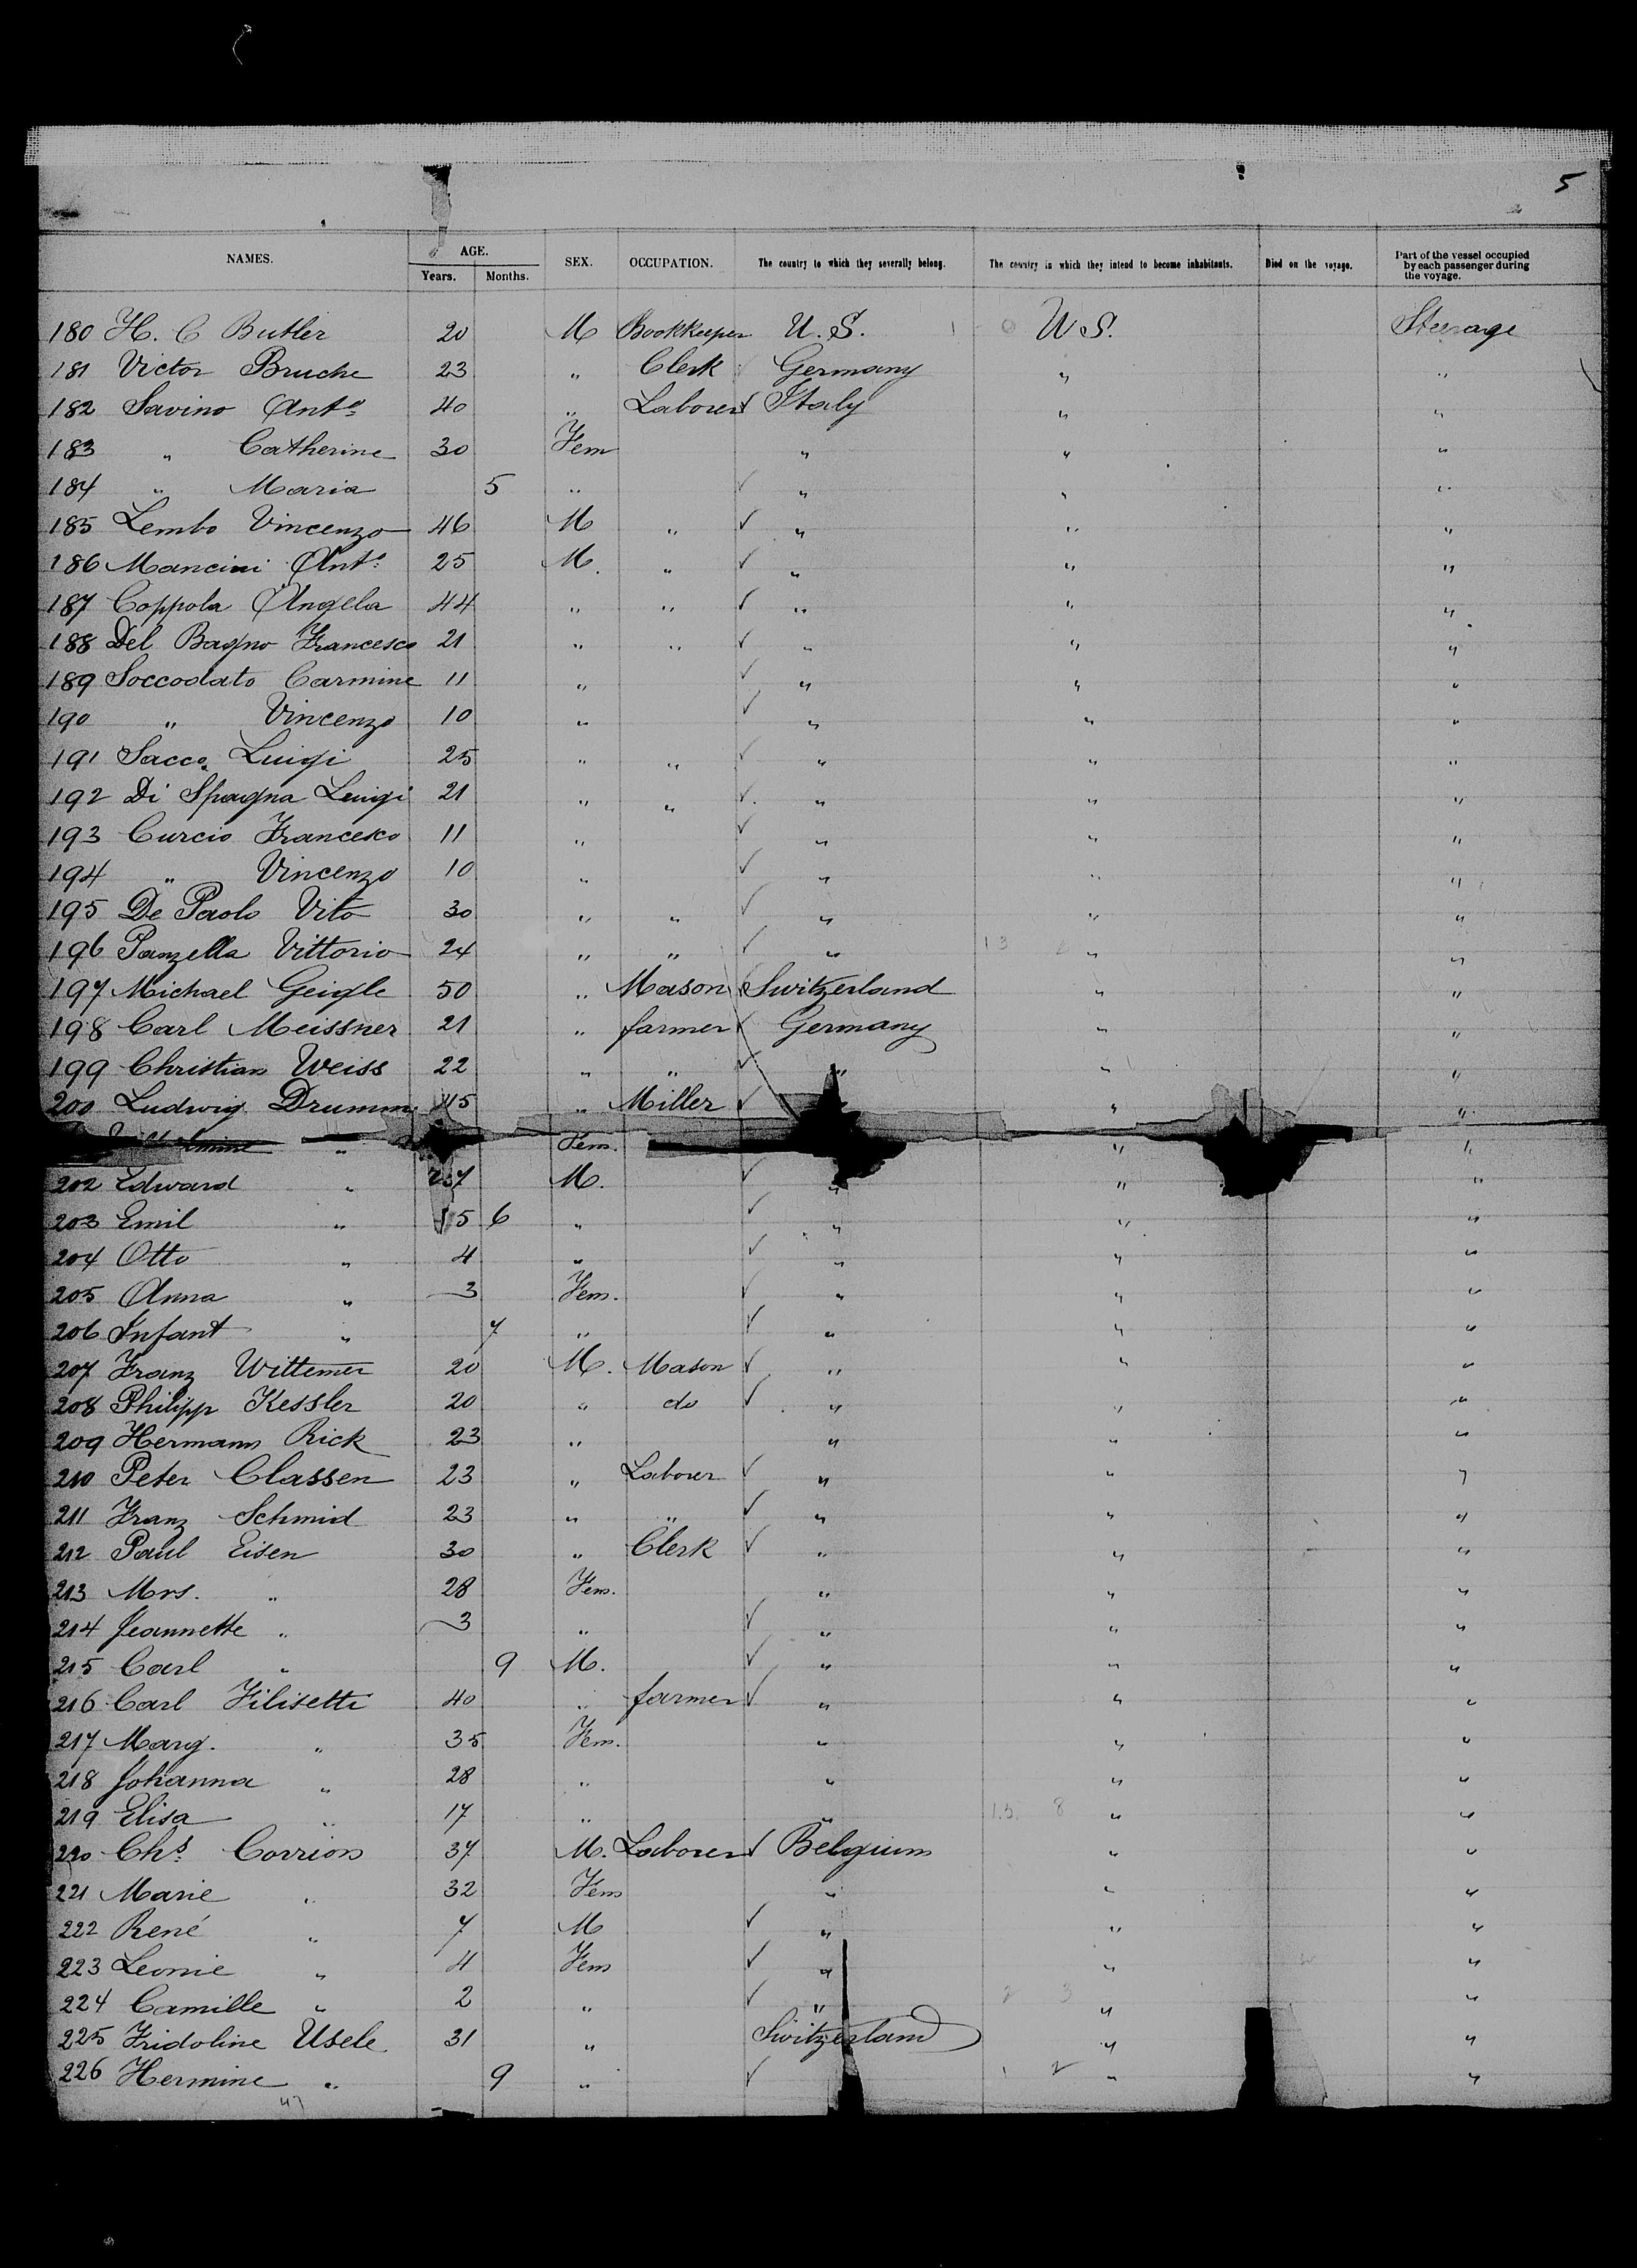 5
NAMES. AGE. Years. Months. SEX. OCCUPATION. The country to which they severally belong. The country in which they intend to become inhabitants. Died on the voyage. Part of the vessel occupied by each passenger during the voyage.
180 H. C Butler 20 M Bookkeeper U. S. U S. Steerage
181 Victor Bruche 23 " Clerk Germany " "
182 Savino Anto 40 " Laborer Italy " "
183 " Catherine 30 Fem " " "
184 " Maria 5 " " " "
185 Lembo Vincenzo 46 M " " " "
186 Mancini Anto 25 M. " " " "
187 Coppola Angela 44 " " " " "
188 Del Bagno Francesco 21 " " " " "
189 Soccodato Carmine 11 " " " "
190 " Vincenzo 10 " " " "
191 Sacco Luigi 25 " " " " "
192 Di Spagna Luigi 21 " " " " "
193 Curcio Francesco 11 " " " "
194 " Vincenzo 10 " " " "
195 De Paolo Vito 30 " " " " "
196 Panzella Vittorio 24 " " " " "
197 Michael Geigle 50 " Mason Switzerland " "
198 Carl Meissner 21 " farmer Germany " "
199 Christian Weiss 22 " " " " "
200 Ludwig Drumm 45 " Miller " "
" Fem. " "
202 Edward " 7 M. " " "
203 Emil " 5 6 " " " "
204 Otto " 4 " " " "
205 Anna " 3 Fem. " " "
206 Infant " 7 " " " "
207 Franz Wittemer 20 M. Mason " " "
208 Philipp Kessler 20 " do " " "
209 Hermann Rick 23 " " " "
210 Peter Classen 23 " Laborer " " "
211 Franz Schmid 23 " " " " "
212 Paul Eisen 30 " Clerk " " "
213 Mrs. " 28 Fem. " " "
214 Jeannette " 3 " " " "
215 Carl " 9 M. " " "
216 Carl Filisetti 40 " farmer " " "
217 Marg. " 35 Fem. " " "
218 Johanna " 28 " " " "
219 Elisa " 17 " " " "
220 Chs. Corrion 37 M. Laborer Belgium " "
221 Marie " 32 Fem " " "
222 René " 7 M " " "
223 Leonie " 4 Fem " " "
224 Camille " 2 " " " "
225 Fridoline Usele 31 " Switzerland " "
226 Hermine " 9 " " "
47